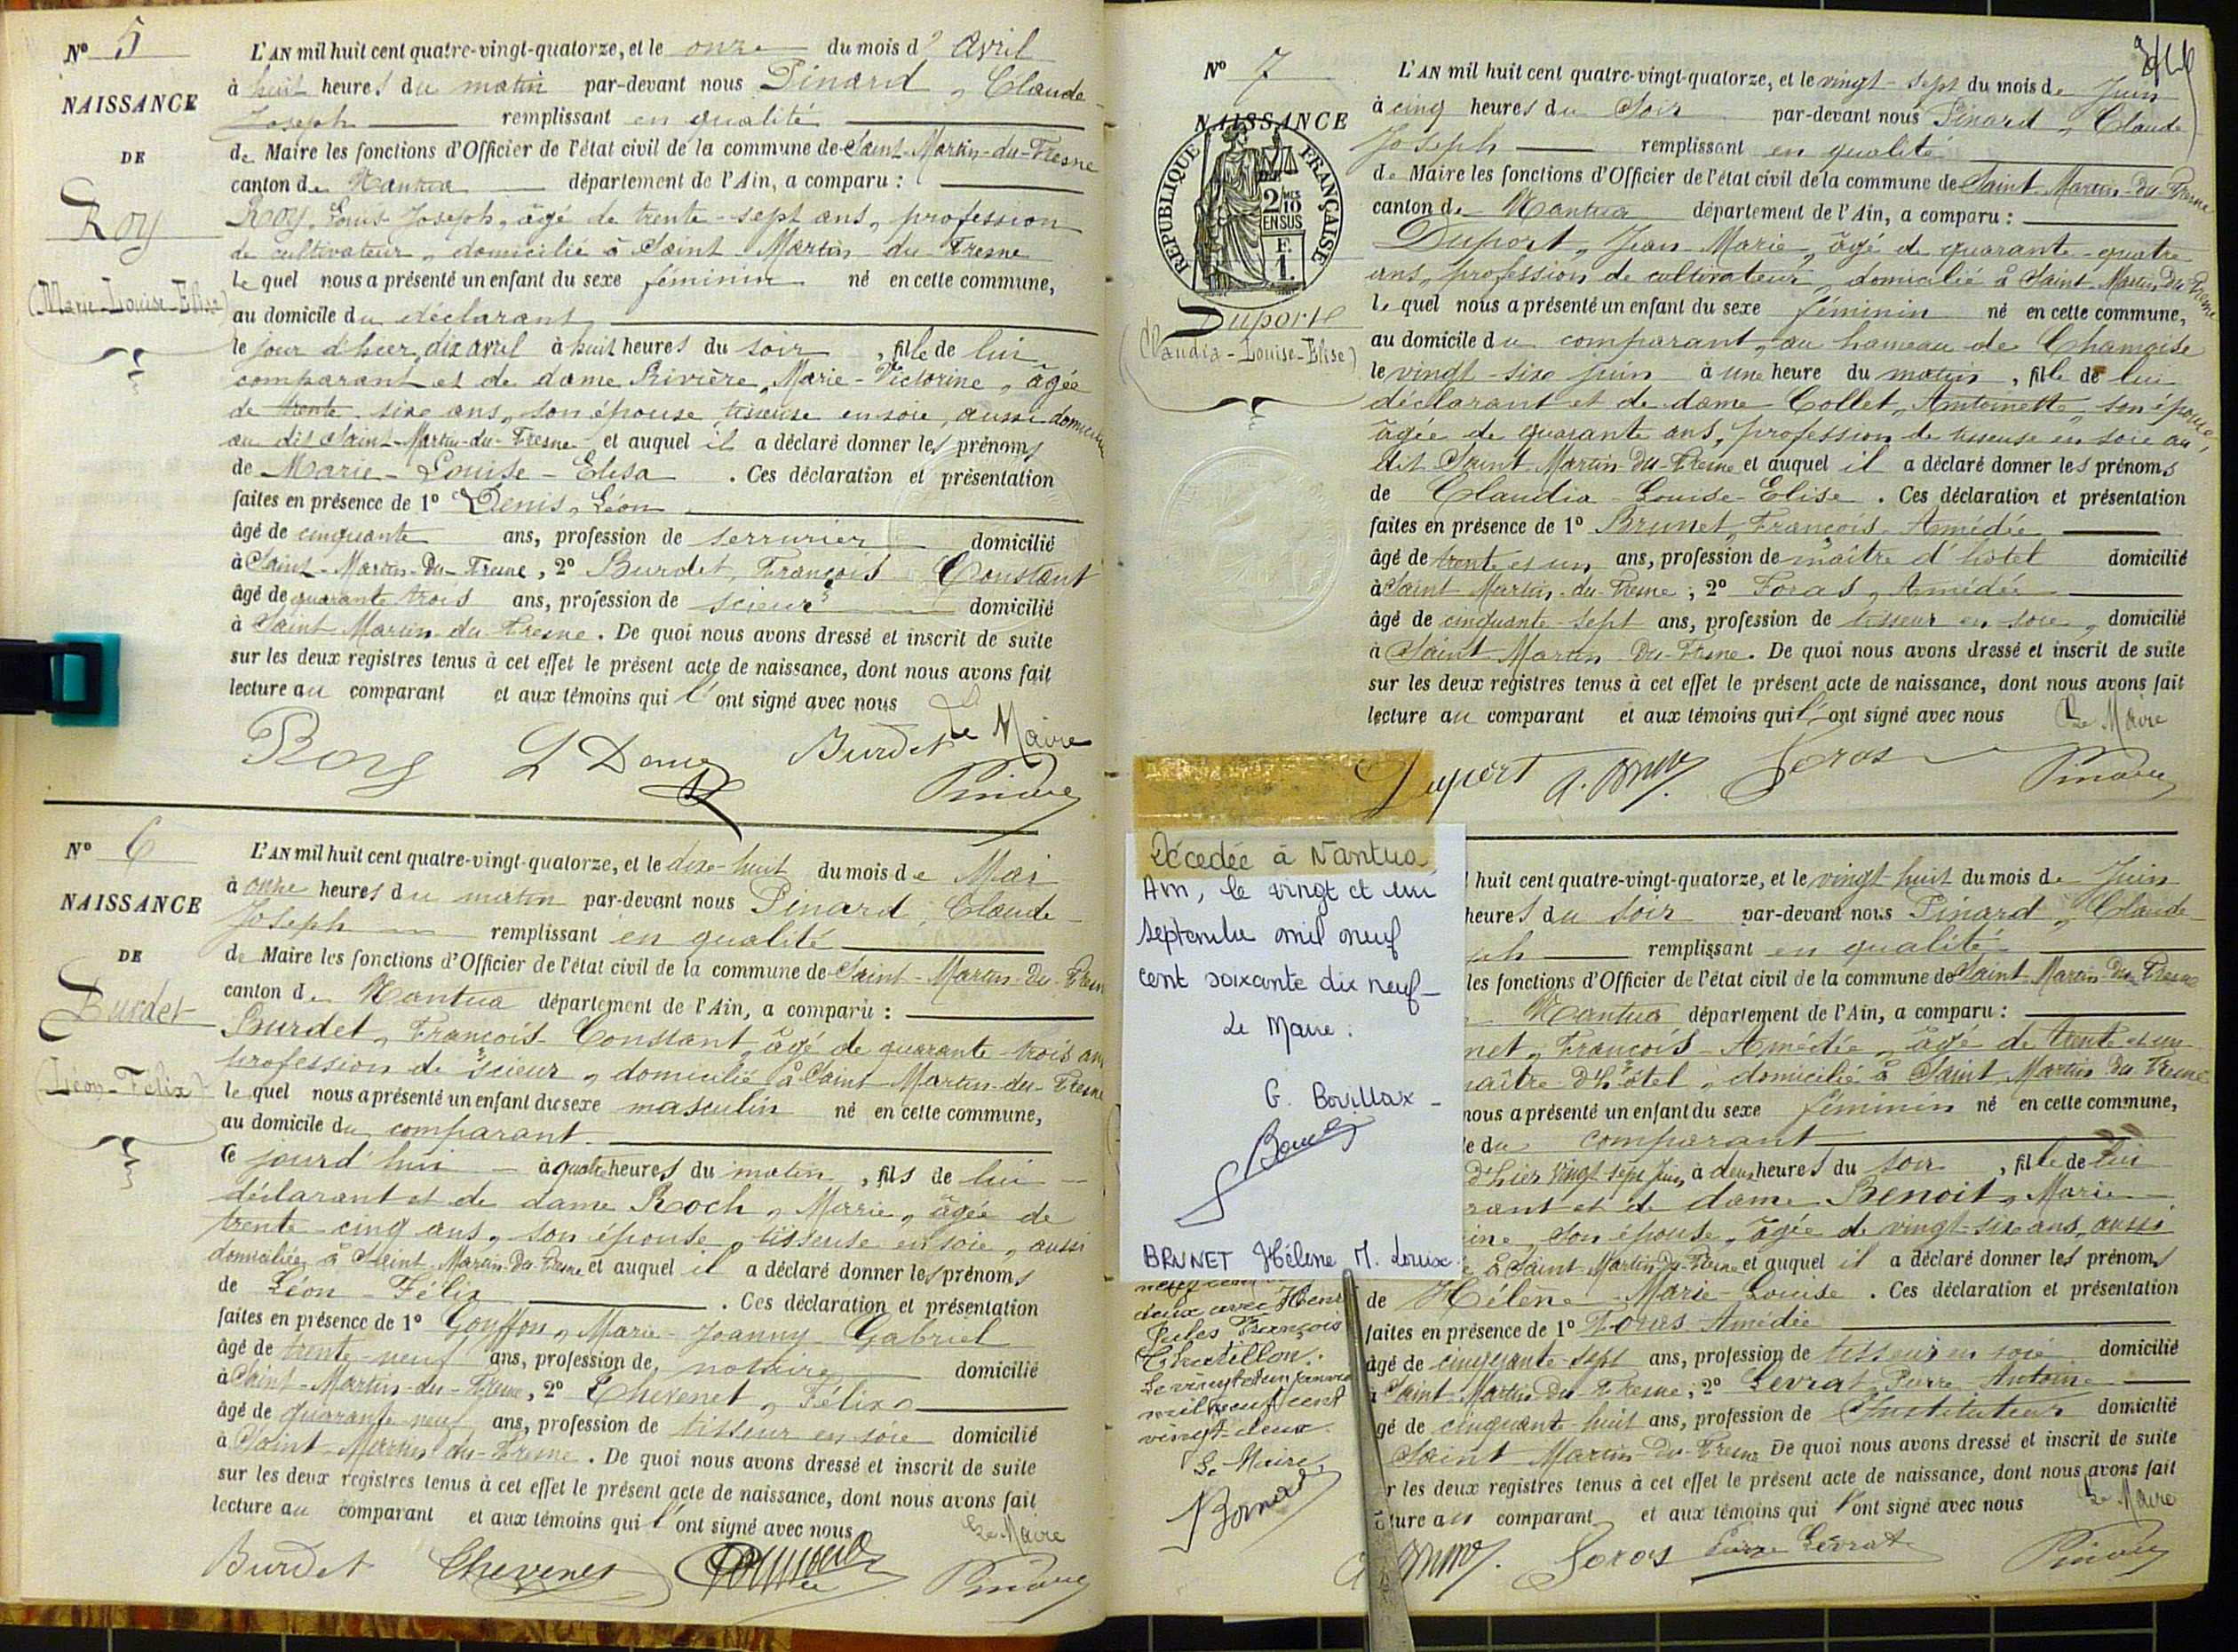 N° 5
NAISSANCE
DE
Roy
(Marie-Louise-Elisa)
L'AN mil huit cent quatre-vingt-quatorze, et le onze du mois d' Avril
à huit heures du matin par-devant nous Pinard, Claude
Joseph remplissant en qualité
de Maire les fonctions d'Officier de l'état civil de la commune de Saint-Martin-du-Fresne
canton de Nantua département de l'Ain, a comparu :
Roy, Louis Joseph, âgé de trente-sept ans, profession
de cultivateur, domicilié à Saint Martin du Fresne
le quel nous a présenté un enfant du sexe féminin né en cette commune,
au domicile du déclarant
le jour d'hier, dix avril à huit heures du soir, fille de lui
comparant et de dame Rivière, Marie-Victorine, âgée
de trente six ans, son épouse, tisseuse en soie, aussi
au dit Saint-Martin-du-Fresne et auquel il a déclaré donner les prénoms
de Marie-Louise-Elisa. Ces déclaration et présentation
faites en présence de 1° Denis, Léon
âgé de cinquante ans, profession de serrurier domicilié
à Saint-Martin-du-Fresne, 2° Burdet, François Constant
âgé de quarante trois ans, profession de scieur domicilié
à Saint Martin du Fresne. De quoi nous avons dressé et inscrit de suite
sur les deux registres tenus à cet effet le présent acte de naissance, dont nous avons fait
lecture au comparant et aux témoins qui l'ont signé avec nous
Le Maire
Roy Burdet Pinard
N° 6
NAISSANCE
DE
Burdet
(Léon-Félix)
L'AN mil huit cent quatre-vingt-quatorze, et le dix-huit du mois de Mai
à onze heures du matin par-devant nous Pinard, Claude
Joseph remplissant en qualité
de Maire les fonctions d'Officier de l'état civil de la commune de Saint-Martin-du-Fresne
canton de Nantua département de l'Ain, a comparu :
Burdet, François Constant, âgé de quarante-trois ans
profession de scieur, domicilié à Saint Martin-du-Fresne
le quel nous a présenté un enfant du sexe masculin né en cette commune,
au domicile du comparant
ce jourd'hui à quatre heures du matin, fils de lui
déclarant et de dame Roch, Marie, âgée de
trente-cinq ans, son épouse, tisseuse en soie, aussi
domiciliée à Saint-Martin-du-Fresne et auquel il a déclaré donner les prénoms
de Léon-Félix. Ces déclaration et présentation
faites en présence de 1° Gouffon, Marie-Joanny Gabriel
âgé de trente-neuf ans, profession de notaire domicilié
à Saint-Martin-du-Fresne, 2° Chevenet, Félix
âgé de quarante-neuf ans, profession de tisseur en soie domicilié
à Saint-Martin du-Fresne. De quoi nous avons dressé et inscrit de suite
sur les deux registres tenus à cet effet le présent acte de naissance, dont nous avons fait
lecture au comparant et aux témoins qui l'ont signé avec nous
Le Maire
Burdet Chevenet Pinard
N° 7
NAISSANCE
RÉPUBLIQUE FRANÇAISE
2/10 EN SUS
F. 1.
Duport
(Claudia-Louise-Elise)
L'AN mil huit cent quatre-vingt-quatorze, et le vingt-sept du mois de Juin
à cinq heures du soir par-devant nous Pinard, Claude
Joseph remplissant en qualité
de Maire les fonctions d'Officier de l'état civil de la commune de Saint Martin-du-Fresne
canton de Nantua département de l'Ain, a comparu :
Duport, Jean-Marie, âgé de quarante-quatre
ans, profession de cultivateur, domicilié à Saint-Martin-Du-Fresne
le quel nous a présenté un enfant du sexe féminin né en cette commune,
au domicile du comparant, au hameau de Chamoise
le vingt-six juin à une heure du matin, fille de lui
déclarant et de dame Collet, Antoinette, son épouse,
âgée de quarante ans, profession de tisseuse en soie au
dit Saint Martin-du-Fresne et auquel il a déclaré donner les prénoms
de Claudia-Louise-Elise. Ces déclaration et présentation
faites en présence de 1° Brunet, François-Amédée
âgé de trente et un ans, profession de maître d'hôtel domicilié
à Saint Martin-du-Fresne; 2° Foras, Amédée
âgé de cinquante-sept ans, profession de tisseur en soie, domicilié
à Saint Martin Du-Fresne. De quoi nous avons dressé et inscrit de suite
sur les deux registres tenus à cet effet le présent acte de naissance, dont nous avons fait
lecture au comparant et aux témoins qui l'ont signé avec nous
Le Maire
Duport Foras Pinard
Décedée à Nantua
Ain, le vingt et un
septembre mil neuf
cent soixante dix neuf_
Le Maire.
G. Bouilloux_
BRUNET Hélène M. Louise.
deux avec Henri
Jules François
Chatillon.
Le vingt et un janvier
mil neuf cent
vingt-deux.
Le Maire,
huit cent quatre-vingt-quatorze, et le vingt huit du mois de Juin
heures du soir par-devant nous Pinard, Claude
ph remplissant en qualité
les fonctions d'Officier de l'état civil de la commune de Saint Martin-du-Fresne
Nantua département de l'Ain, a comparu :
net, François-Amédée, âgé de trente et un
aître d'hôtel, domicilié à Saint Martin du Fresne
nous a présenté un enfant du sexe féminin né en cette commune,
e du comparant
d'hier vingt sept juin à deux heures du soir, fille de lui
rant et de dame Benoit, Marie
ine, son épouse, âgée de vingt-six ans, aussi
à Saint-Martin-du-Fresne et auquel il a déclaré donner les prénoms
de Hélène-Marie-Louise. Ces déclaration et présentation
faites en présence de 1° Foras Amédée
âgé de cinquante-sept ans, profession de tisseur en soie domicilié
à Saint-Martin-du-Fresne; 2° Levrat, Pierre Antoine
gé de cinquante-huit ans, profession de Instituteur domicilié
Saint Martin-Du-Fresne De quoi nous avons dressé et inscrit de suite
r les deux registres tenus à cet effet le présent acte de naissance, dont nous avons fait
cture au comparant et aux témoins qui l'ont signé avec nous
Le Maire
Foras Pierre Levrat Pinard